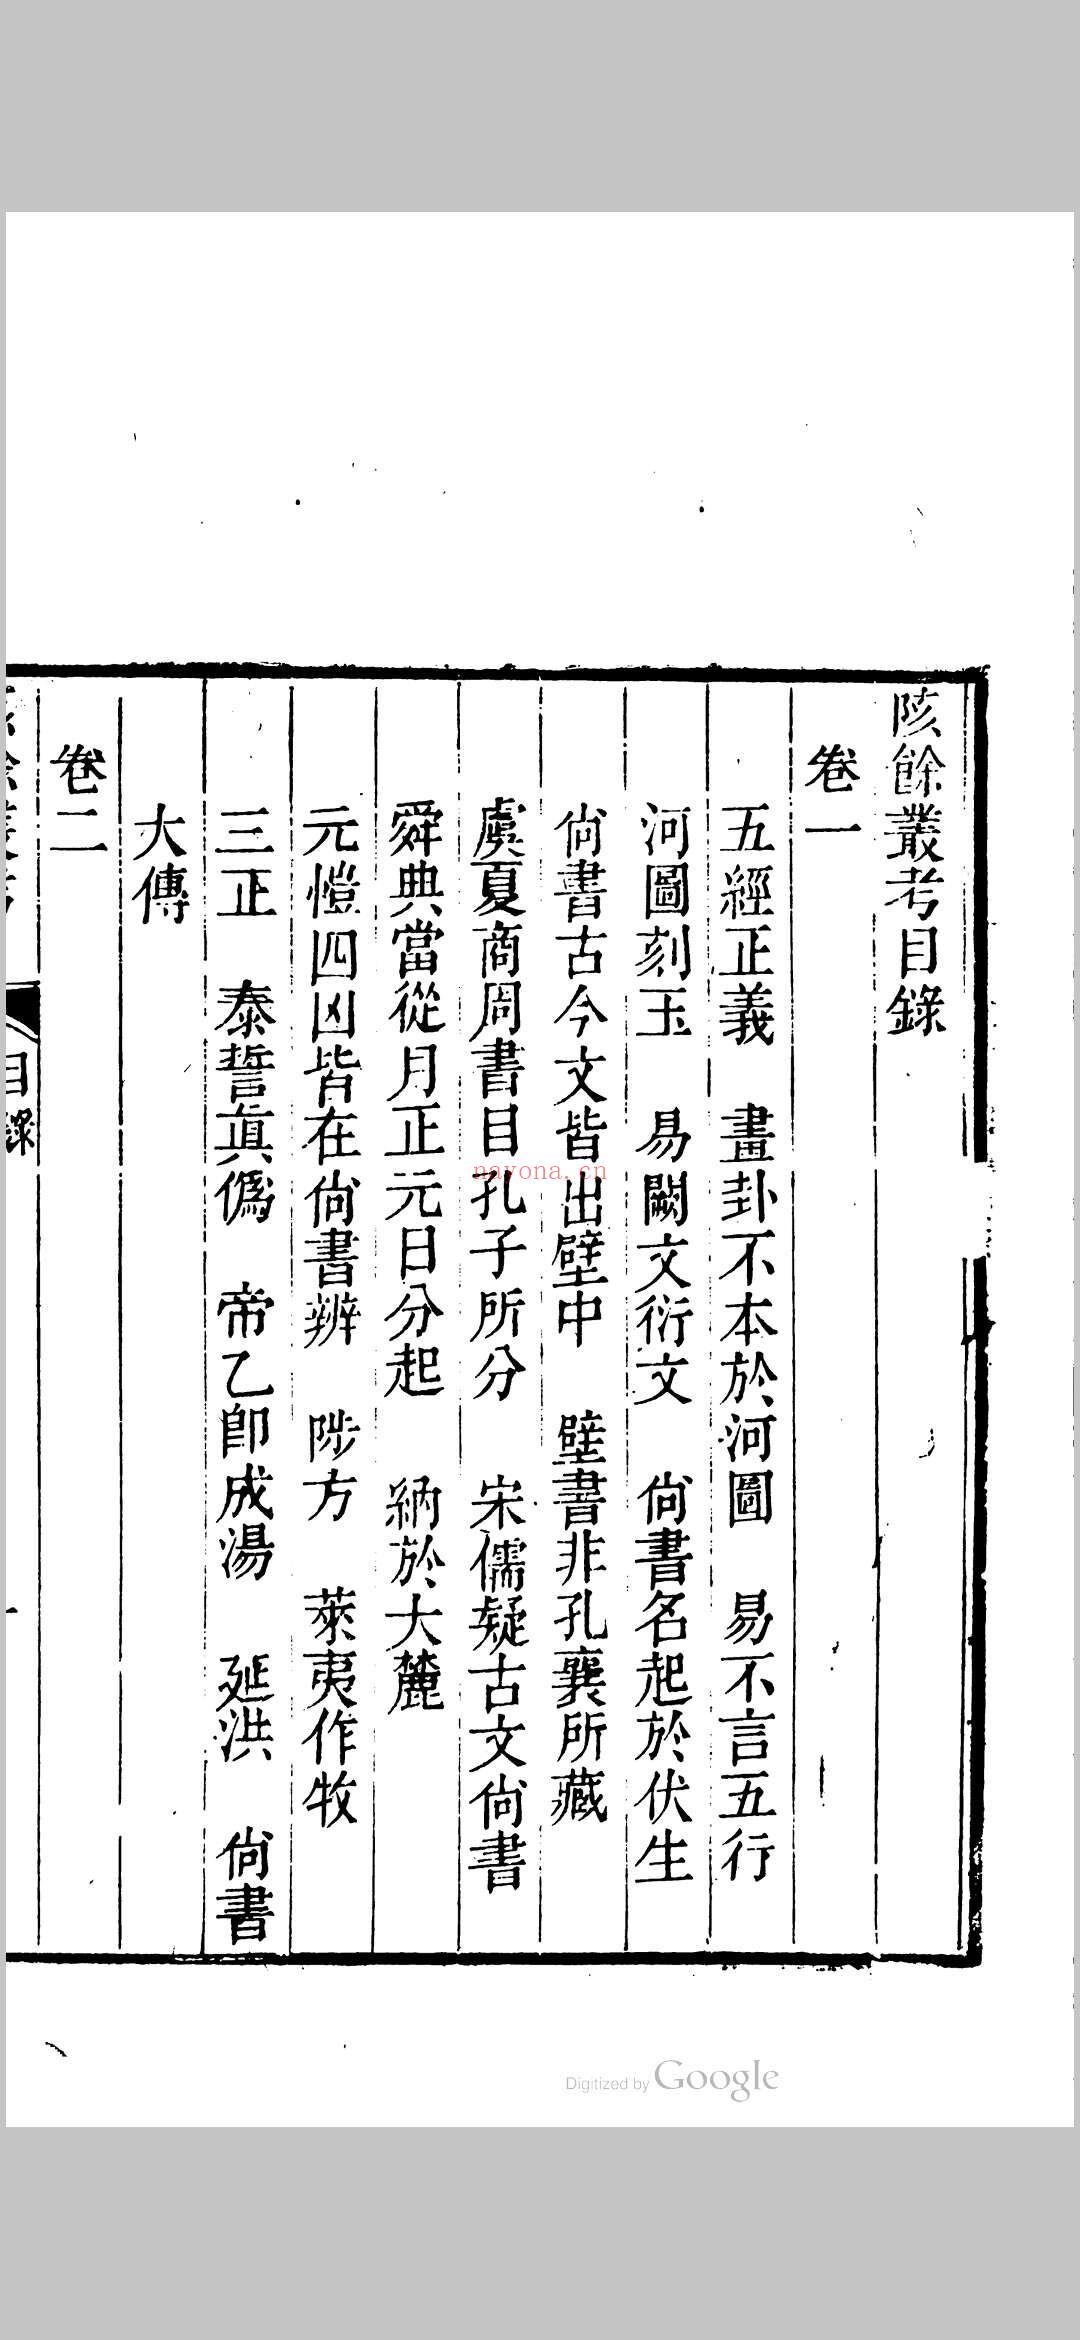 陔餘叢考目錄
卷一
五經正義　畫卦不本於河圖　易不言五行
河圖刻玉　易闕文衍文　尚書名起於伏生
尚書古今文皆出壁中　壁書非孔襄所藏
虞夏商周書目孔子所分　宋儒疑古文尚書
舜典當從月正元日分起　納於大麓
元愷四凶皆在尚書辨　陟方　萊夷作牧
三正　泰誓眞僞　帝乙卽成湯　延洪　尚書
大傳
卷二
目錄
一
nayona.cn
Digitized by Google